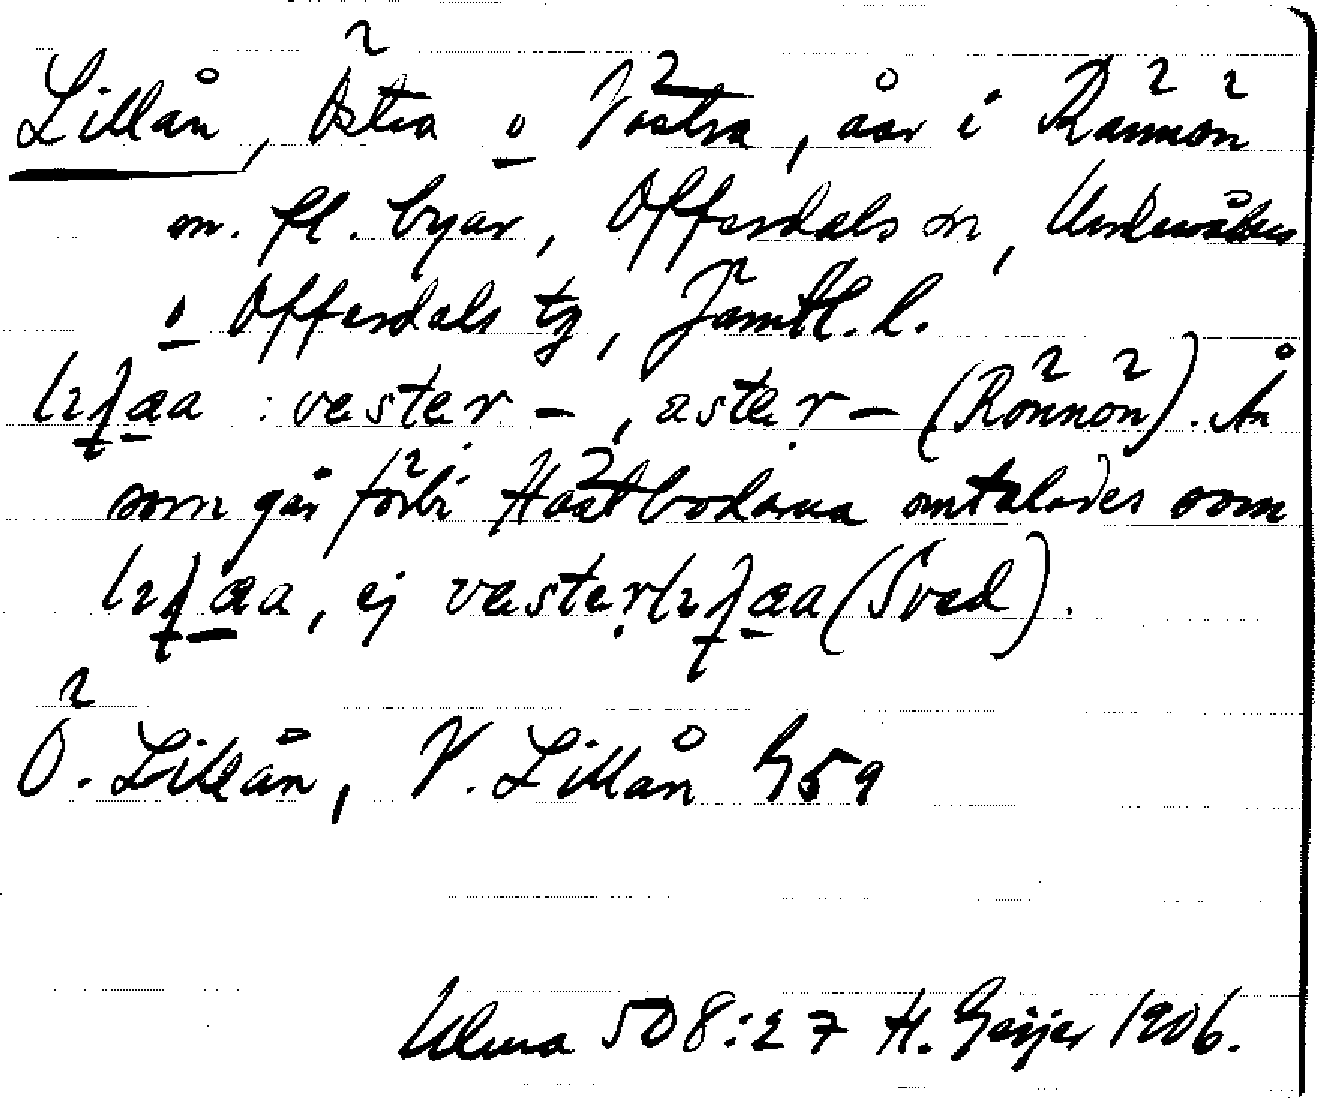 Lillån, Östra o Västra, åar i Rännön
m. fl. byar, Offerdals sn, Undersåkers
o Offerdals tg, Jämtl. l.
vester-, aster- (Rönnön). Ån
som går förbi Hästbodarna omtalades som
, ej (Sved).
Ö. Lillån, V. Lillån G59
Ulma 508:27 H. Geijer 1906.